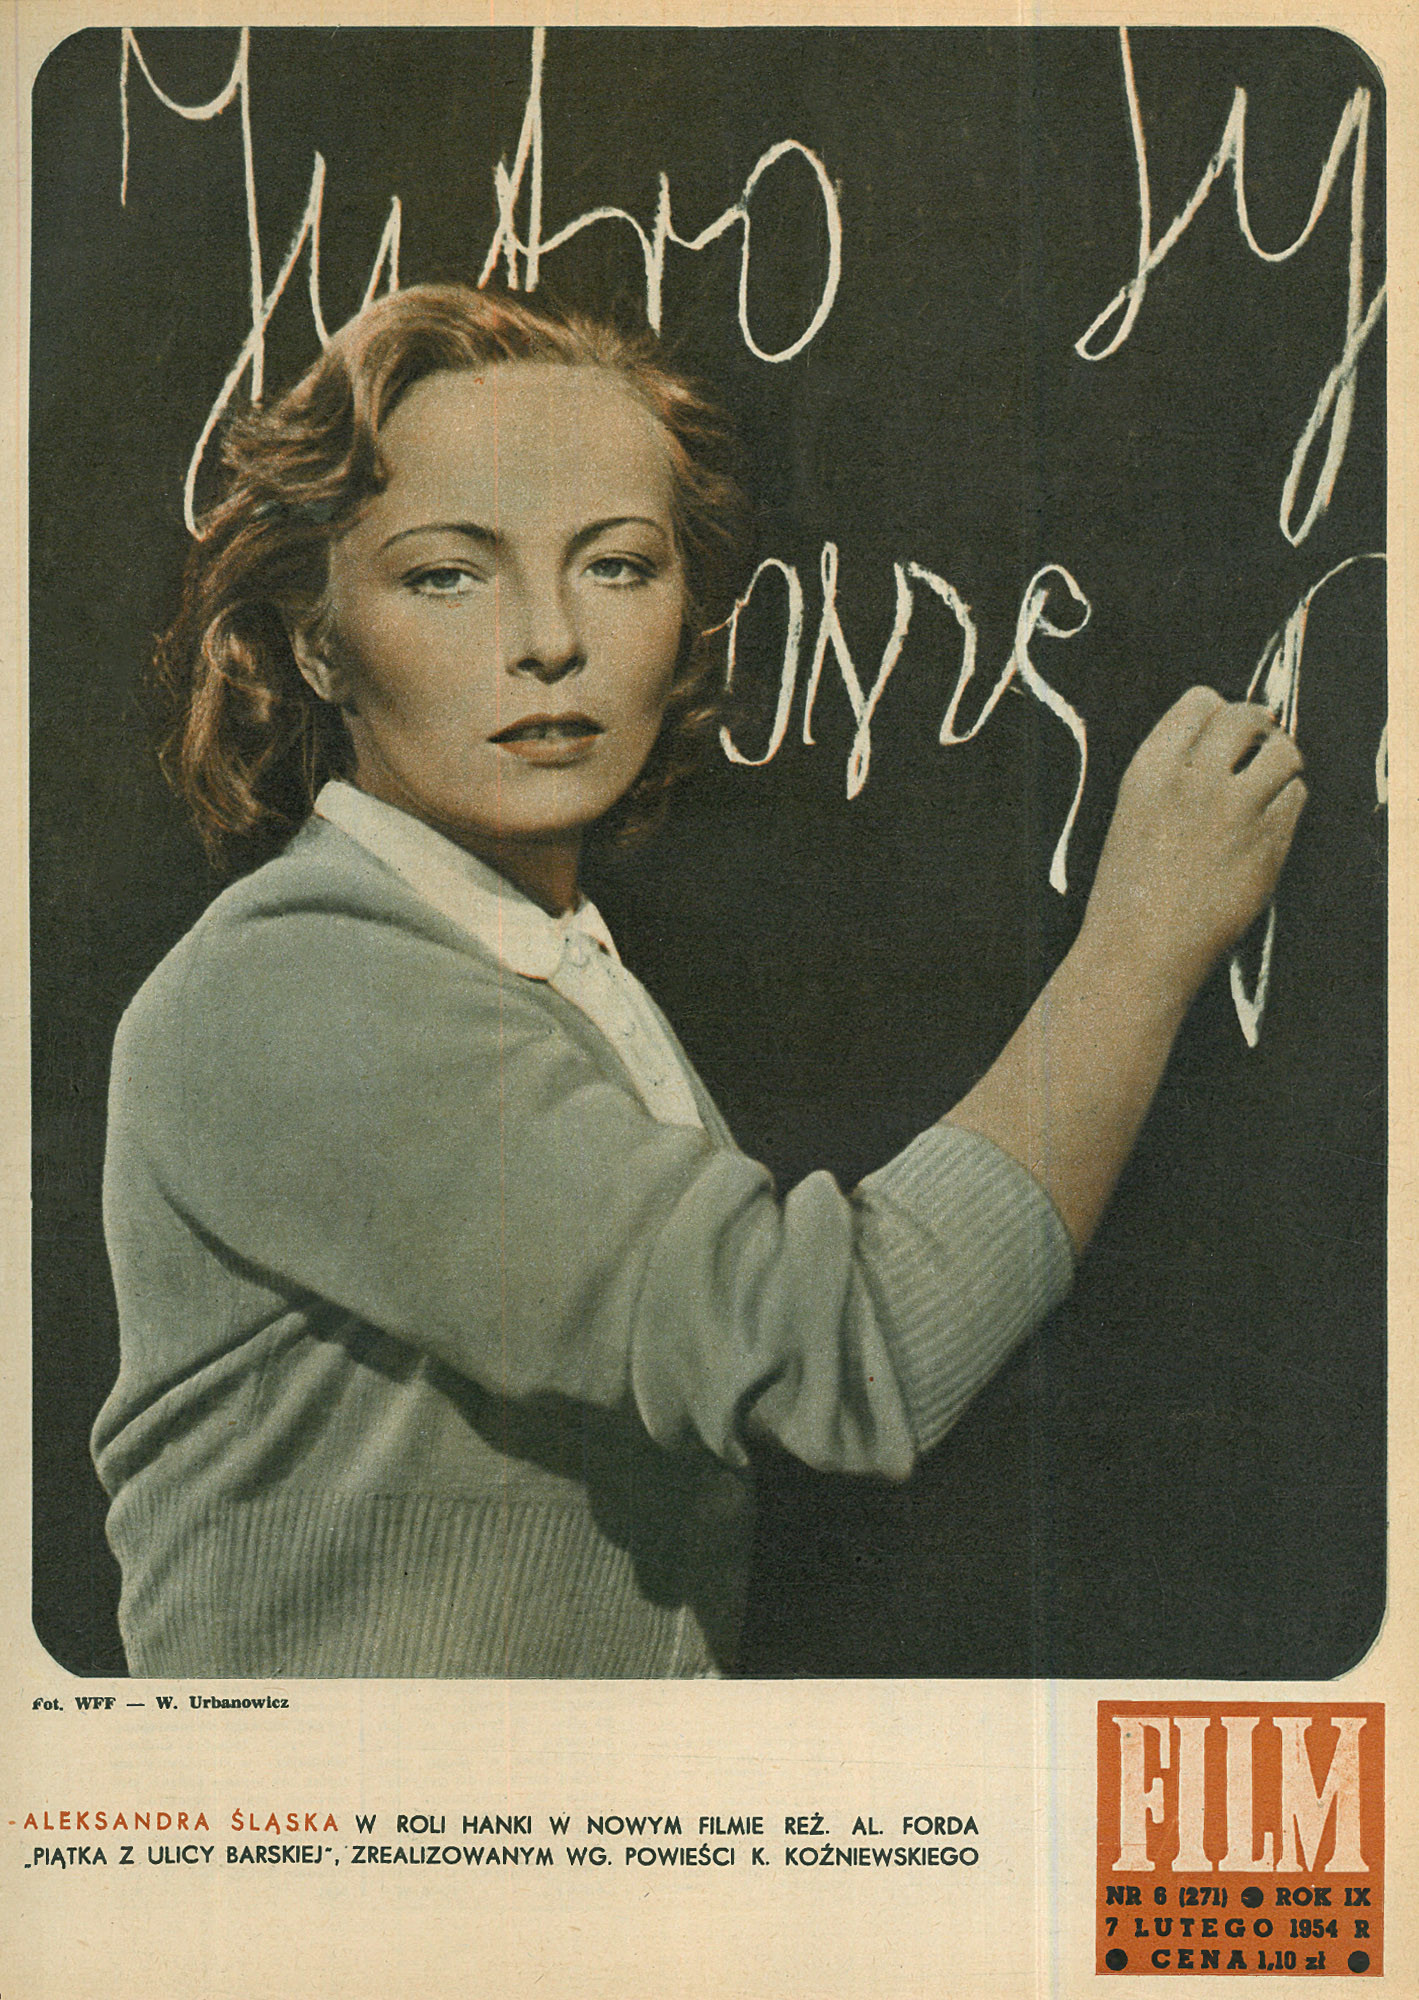 Jutro
Fot. WFF — W. Urbanowicz
ALEKSANDRA ŚLĄSKA W ROLI HANKI W NOWYM FILMIE REŻ. AL. FORDA
„PIĄTKA Z ULICY BARSKIEJ", ZREALIZOWANYM WG. POWIEŚCI K. KOŹNIEWSKIEGO
FILM
NR 6 (271) ● ROK IX
7 LUTEGO 1954 R
● CENA 1,10 zł ●